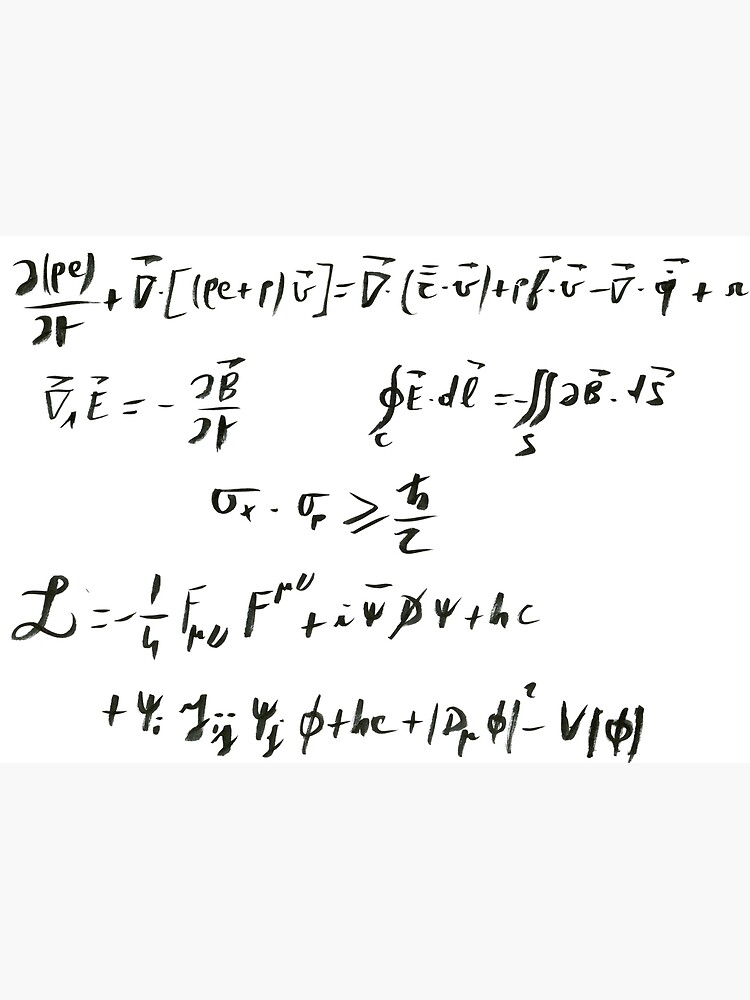 ∂(ρe)/∂t + ∇⃗·[(ρe+p)v⃗] = ∇⃗·(τ̿·v⃗) + ρf⃗·v⃗ − ∇⃗·q̇⃗ + r
∇⃗∧E⃗ = −∂B⃗/∂t ∮_C E⃗·dl⃗ = −∬_S ∂B⃗·dS⃗
σₓ·σₚ ⩾ ħ/2
ℒ = −1/4 F_μν F^μν + iψ̄D̸ψ + hc
+ ψᵢ yᵢⱼ ψⱼ ϕ + hc + |D_μ ϕ|² − V(ϕ)